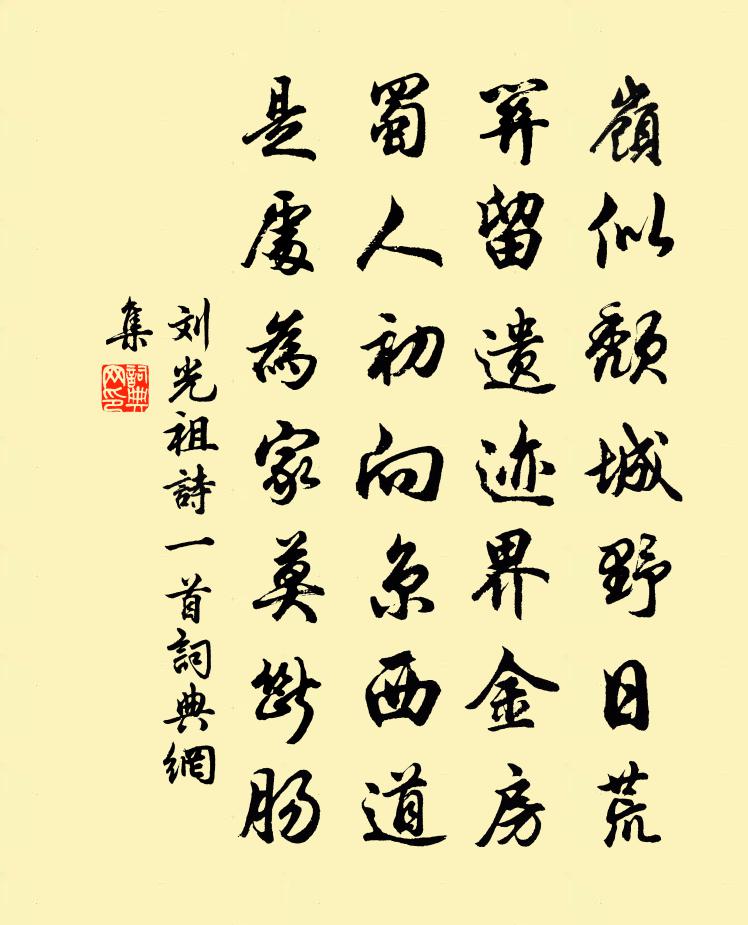 嶺似頹城野日荒
筭留遺迹界金房
蜀人初向京西道
是處為家莫斷腸
刘光祖詩一首詞典網
集
詞典网印